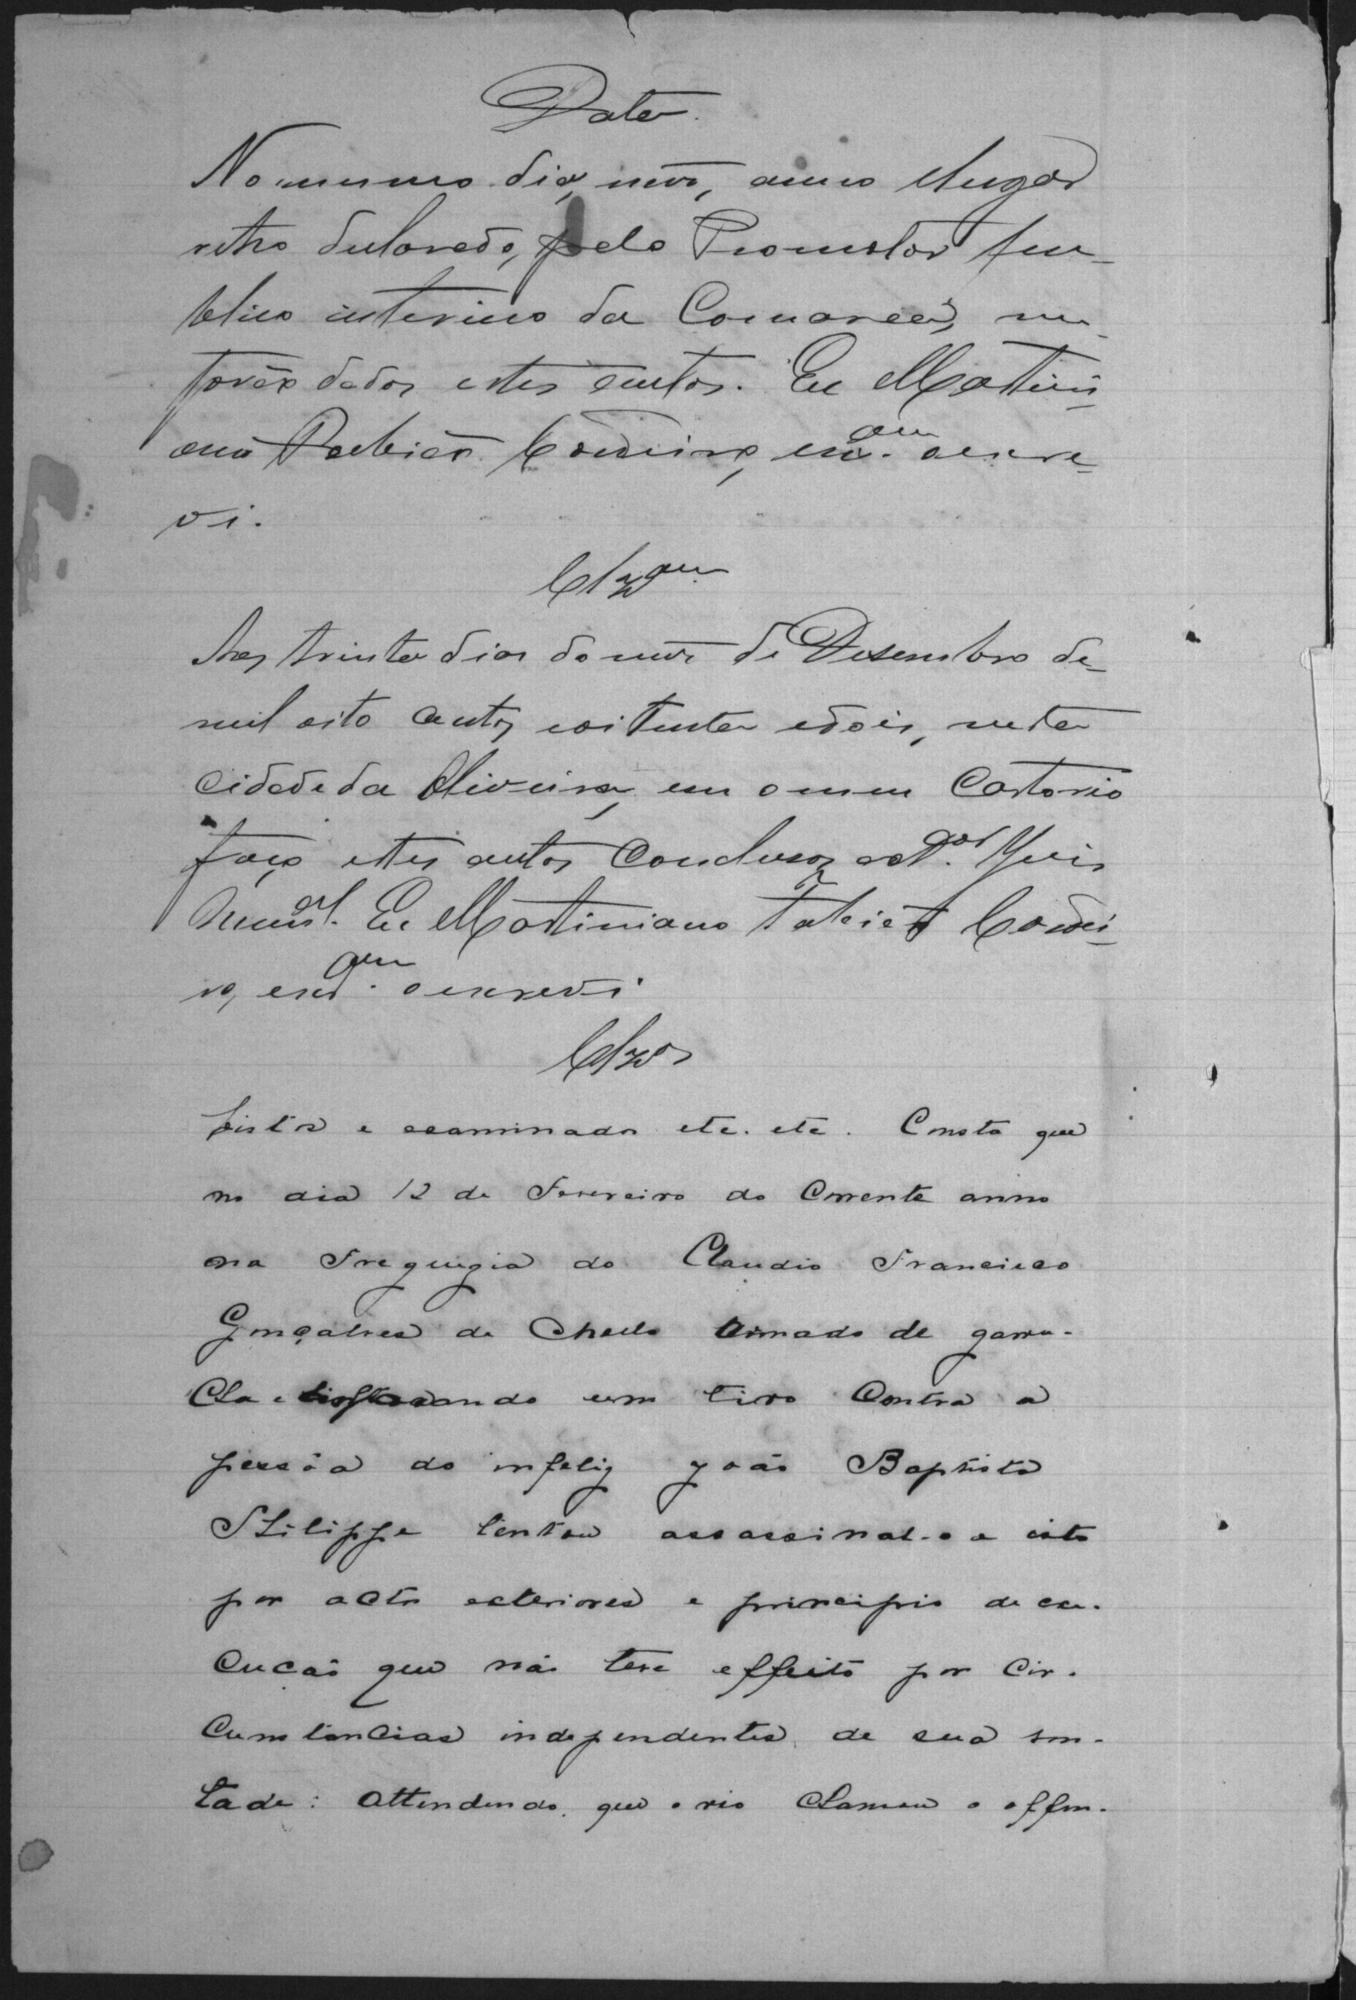 Data.
No mesmo dia, mês, anno e lugar
retro declarado, pelo Promotor Pu-
blico interino da Comarca, me
forão dados estes autos. Eu Martini-
ano Cordeiro, escr.am o escre-
vi.
Clz.am
Aos trinta dias do mês de Desembro de
mil oito centos e oitenta e dois, nesta
cidade da Oliveira, em o meu Cartorio
faço estes autos conclusos ao D.or Juis
Munis.al. Eu Martiniano Cordei-
ro, escr.am o escrevi
Clzos
Vistos e examinados etc. etc. Consta que
no dia 12 de Fevereiro do Corrente anno
na Freguezia do Claudio Francisco
Gonçalves de armado de garru-
cha e um tiro Contra a
pessôa do infeliz João Baptista
Philippe tentou assassinal-o e isto
por actos exteriores e principio de exe-
cucão que não teve effeito por Cir-
cumstancias independentes de sua von-
tade: Attendendo que o réo chamou o offen-